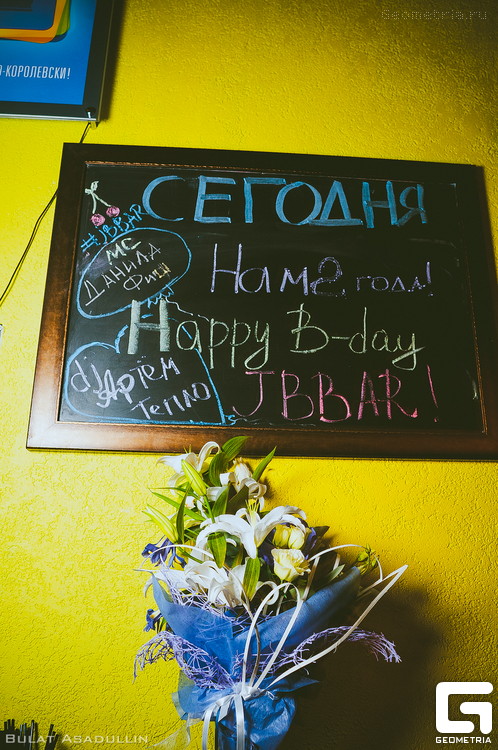 Geometria.ru
-КОРОЛЕВСКИ!
СЕГОДНЯ
#JBBAR
МС
ДАНИЛА
Фин
Нам 2 года!
Happy B-day
JBBAR!
dj Артём
Тепло
BULAT ASADULLIN
GEOMETRIA